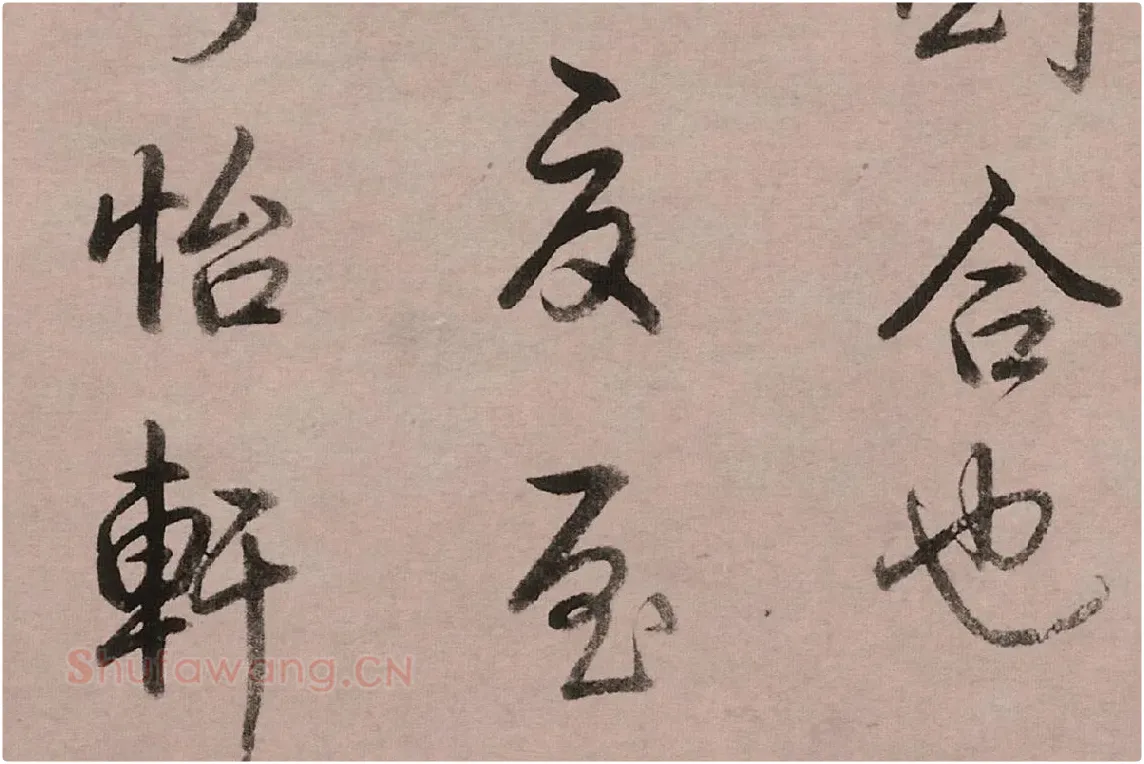 合也
夏至
怡軒
Shufawang.CN